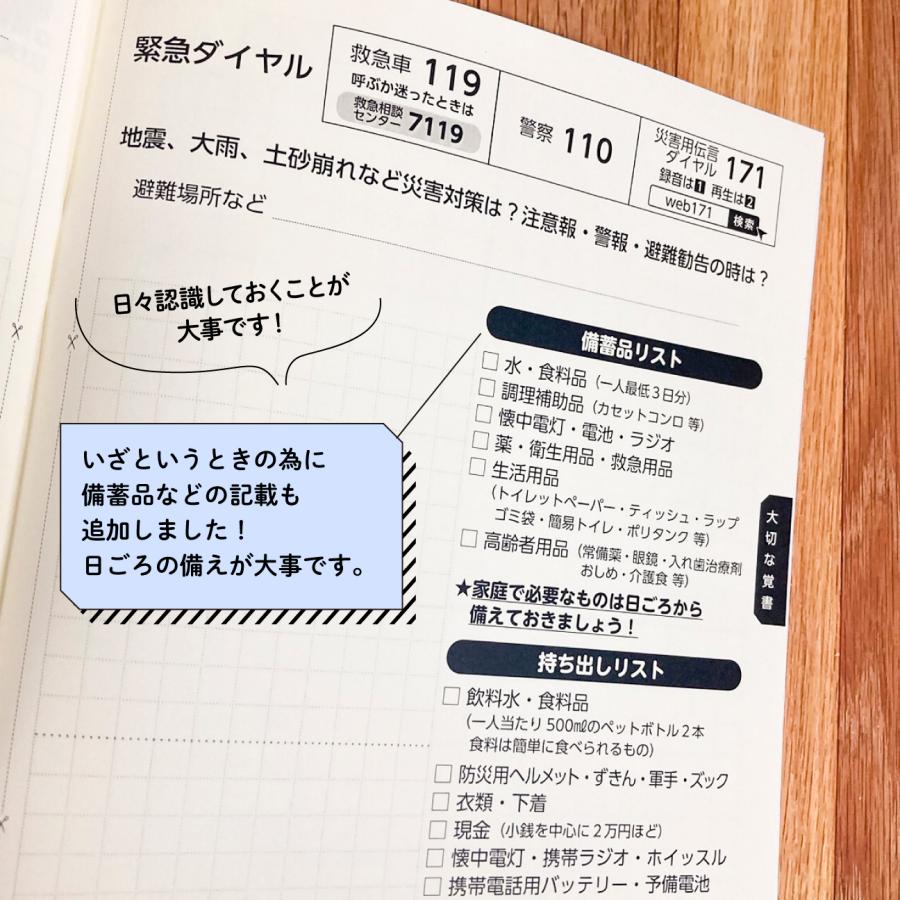 緊急ダイヤル
救急車 119
呼ぶか迷ったときは
救急相談
センター 7119
警察 110
災害用伝言
ダイヤル 171
録音は1 再生は2
web171 検索
地震、大雨、土砂崩れなど災害対策は？注意報・警報・避難勧告の時は？
避難場所など
日々認識しておくことが
大事です！
いざというときの為に
備蓄品などの記載も
追加しました！
日ごろの備えが大事です。
備蓄品リスト
□ 水・食料品（一人最低３日分）
□ 調理補助品（カセットコンロ 等）
□ 懐中電灯・電池・ラジオ
□ 薬・衛生用品・救急用品
□ 生活用品
（トイレットペーパー・ティッシュ・ラップ
ゴミ袋・簡易トイレ・ポリタンク 等）
□ 高齢者用品（常備薬・眼鏡・入れ歯治療剤
おしめ・介護食 等）
★家庭で必要なものは日ごろから
備えておきましょう！
大切な覚書
持ち出しリスト
□ 飲料水・食料品
（一人当たり 500㎖のペットボトル２本
食料は簡単に食べられるもの）
□ 防災用ヘルメット・ずきん・軍手・ズック
□ 衣類・下着
□ 現金（小銭を中心に２万円ほど）
□ 懐中電灯・携帯ラジオ・ホイッスル
□ 携帯電話用バッテリー・予備電池